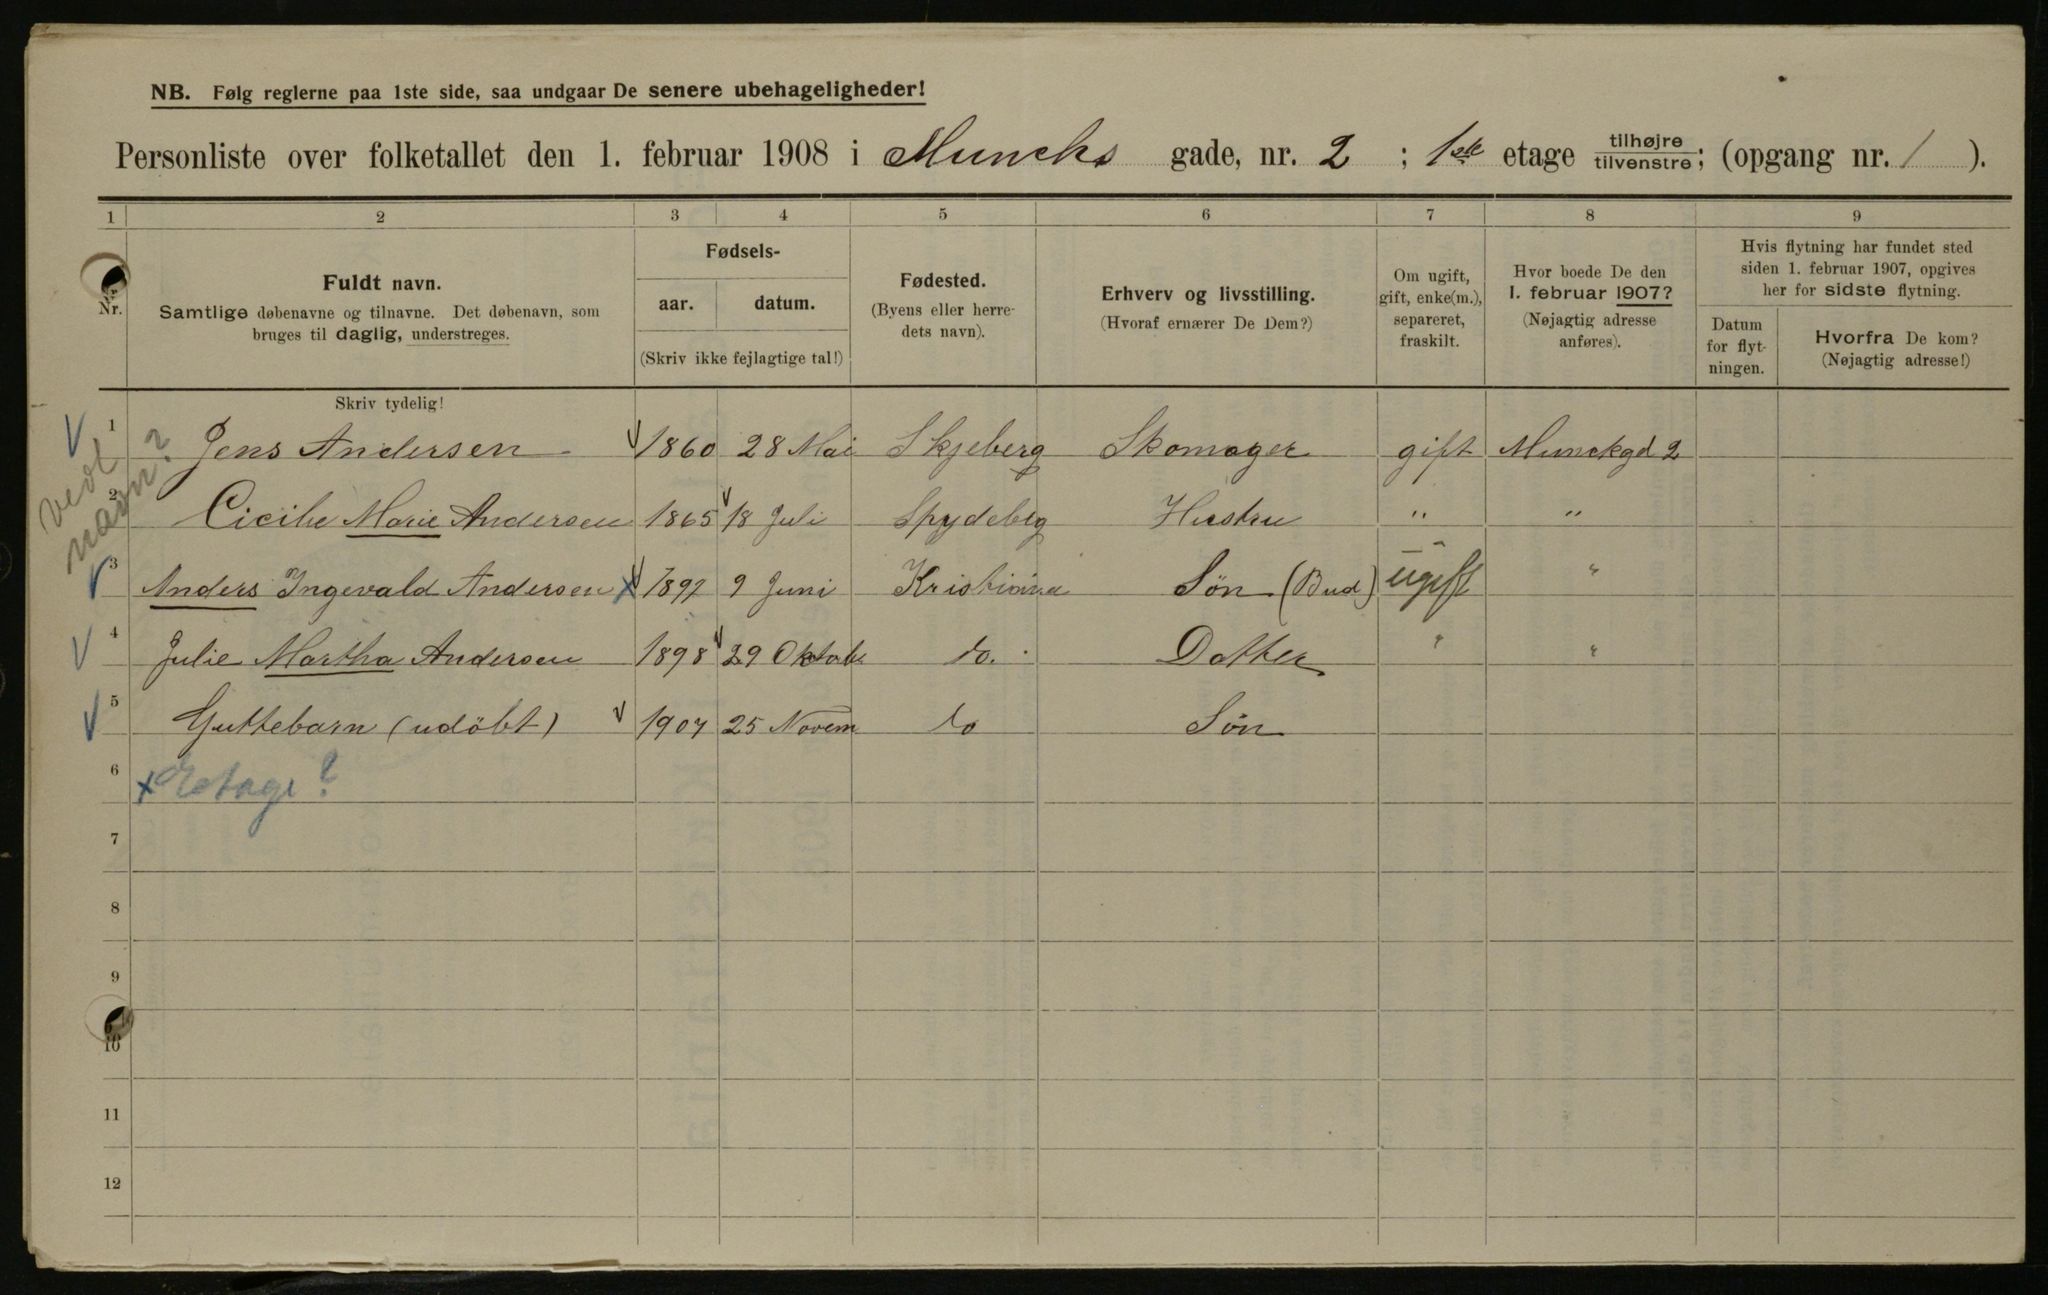 NB. Følg reglerne paa 1ste side, saa undgaar De senere ubehageligheder!
Personliste over folketallet den 1. februar 1908 i Muncks gade, nr. 2 ; 1ste etage tilhøjre tilvenstre; (opgang nr. 1 ).
1 2 3 4 5 6 7 8 9
Nr.
Fuldt navn.
Samtlige døbenavne og tilnavne. Det døbenavn, som
bruges til daglig, understreges.
Fødsels-
aar. datum.
(Skriv ikke fejlagtige tal!)
Fødested.
(Byens eller herre-
dets navn).
Erhverv og livsstilling.
(Hvoraf ernærer De Dem?)
Om ugift,
gift, enke(m.),
separeret,
fraskilt.
Hvor boede De den
1. februar 1907?
(Nøjagtig adresse
anføres).
Hvis flytning har fundet sted
siden 1. februar 1907, opgives
her for sidste flytning.
Datum
for flyt-
ningen.
Hvorfra De kom?
(Nøjagtig adresse!)
Skriv tydelig!
1 Jens Andersen 1860 28 Mai Skjeberg Skomager gift Munckgd 2
2 Cicilie Marie Andersen 1865 18 Juli Spydebeg Hustru " "
3 Anders Ingevald Andersen x 1892 9 Juni Kristiania Søn (Bud) ugift "
4 Julie Martha Andersen 1898 29 Oktob. do. Datter " "
5 Guttebarn (udöbt) 1907 25 Novem do Sön
6 x Etage?
7
8
9
10
11
12
navn?